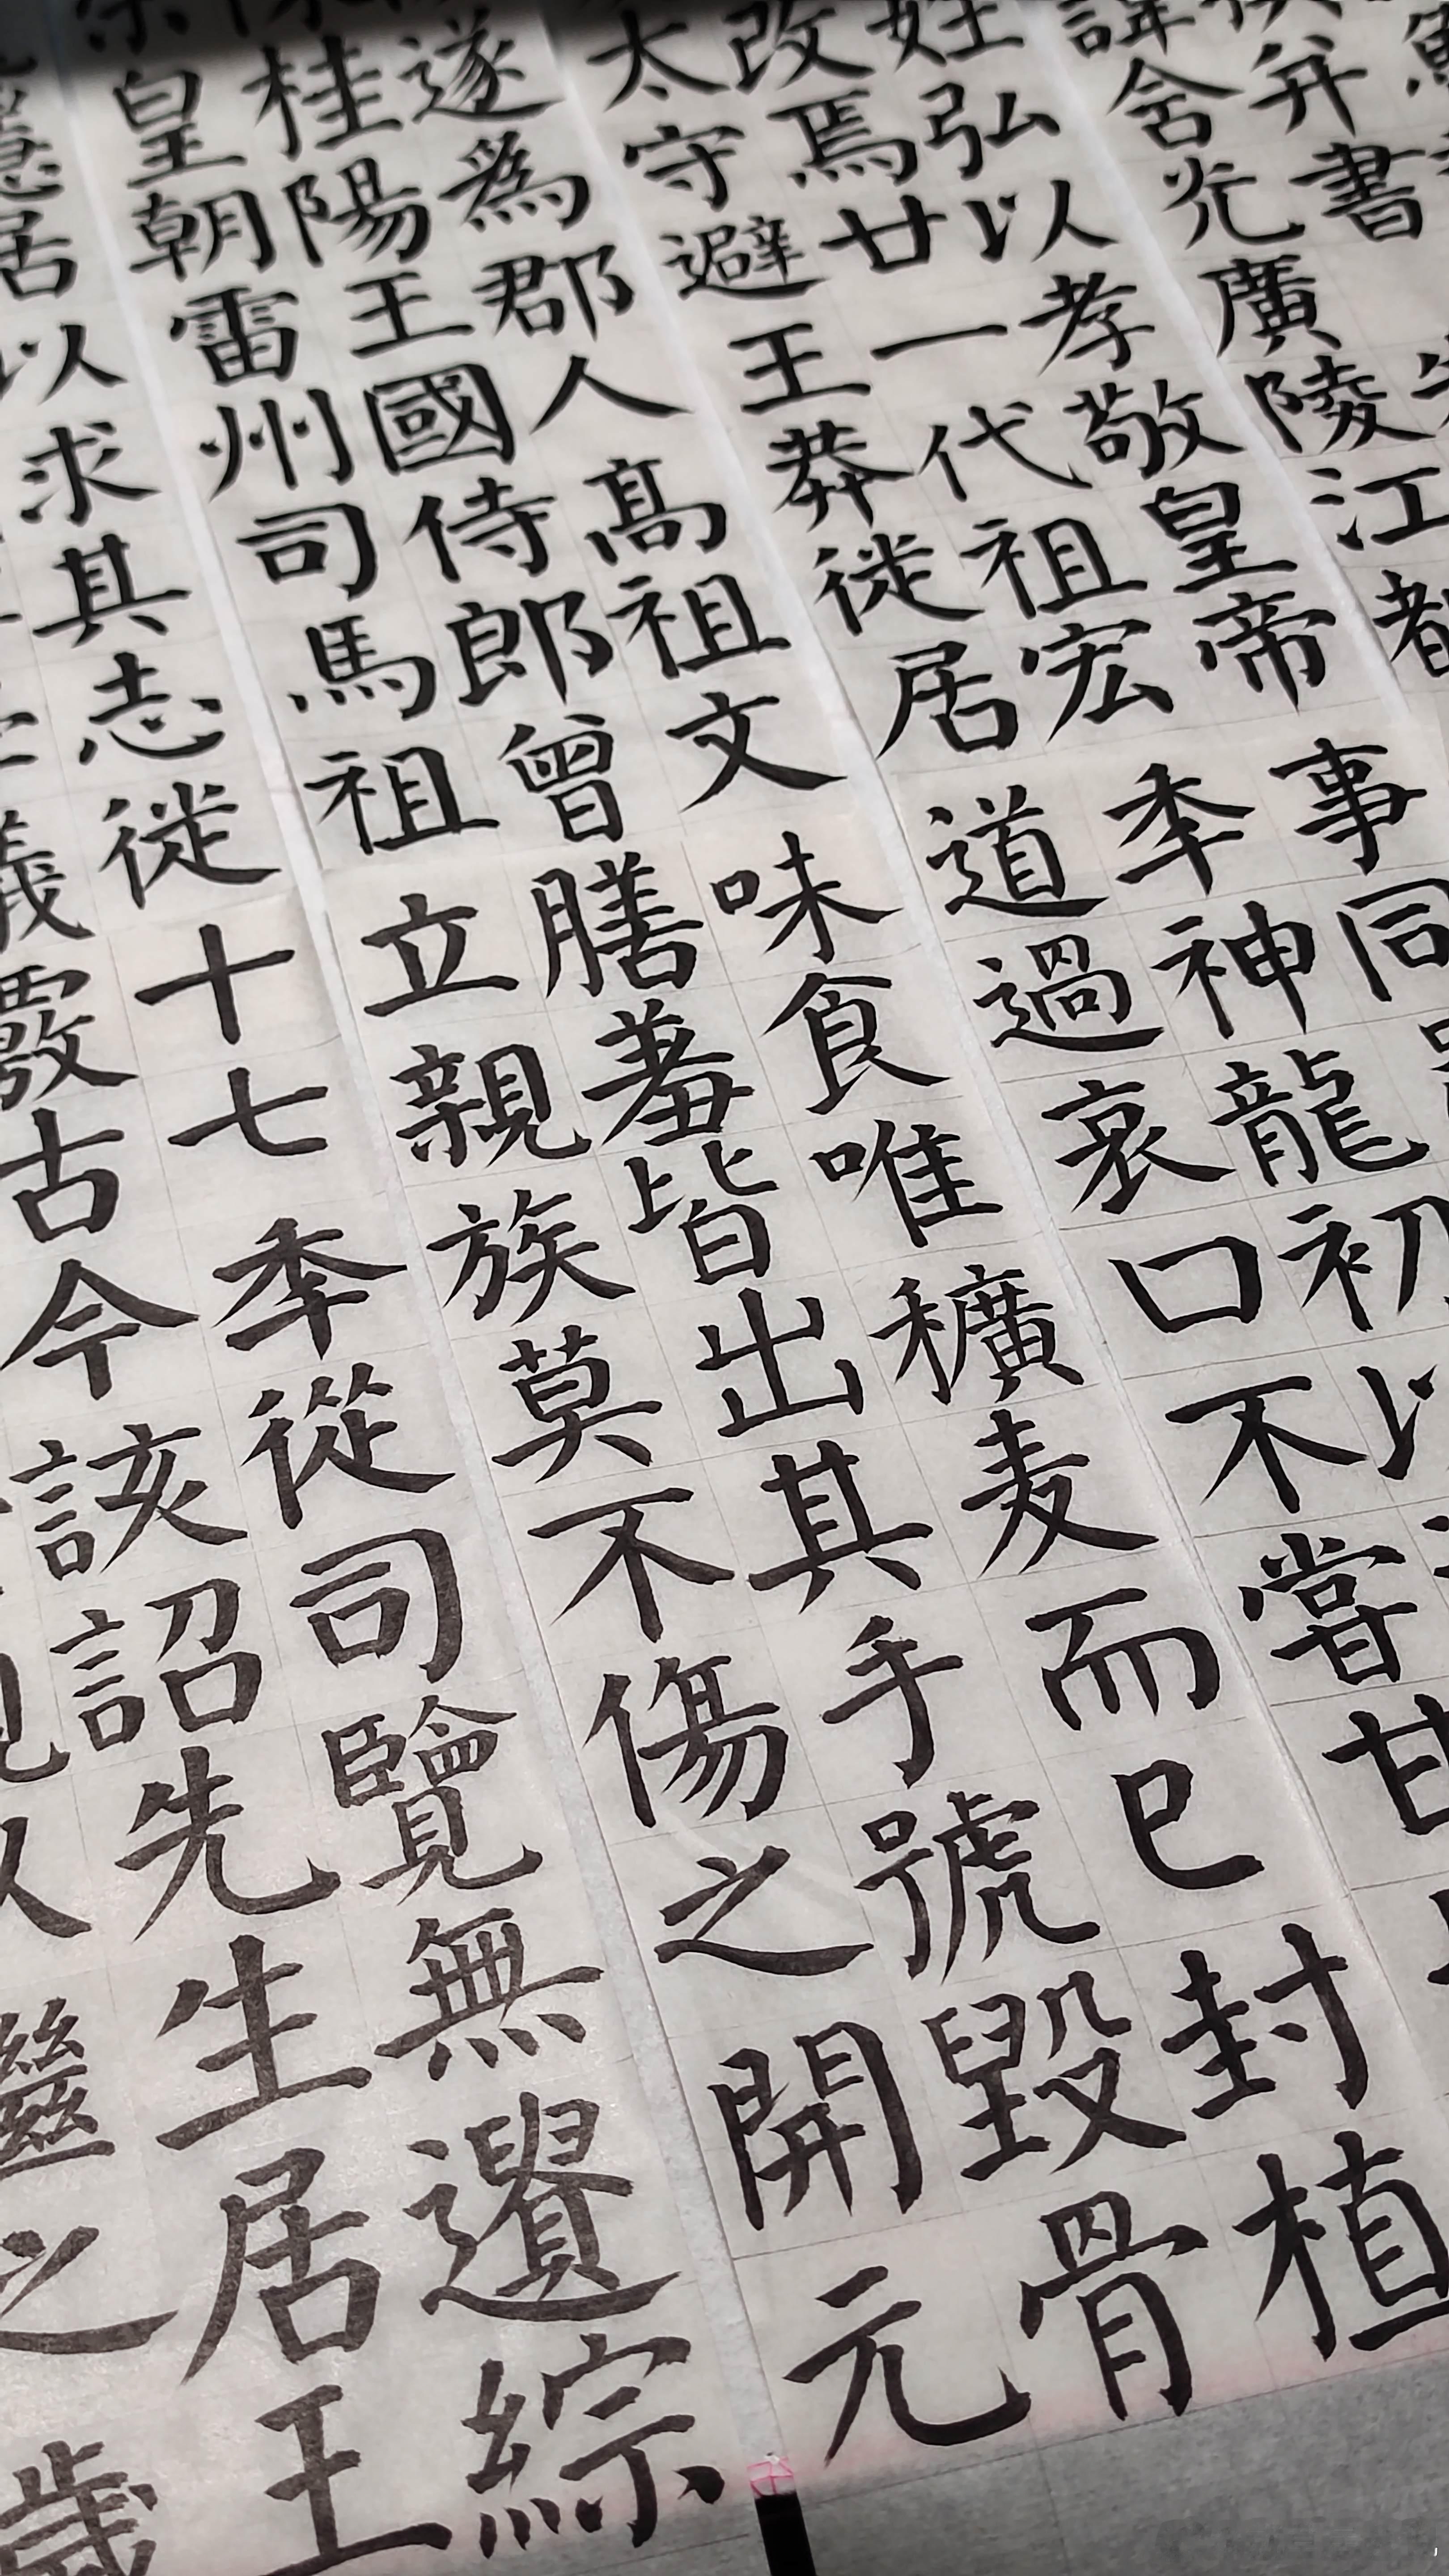 書
諱含光廣陵江都
姓弘以孝敬皇帝事同
改焉廿一代祖宏季神龍初以
太守避王莽徙居道過哀口不嘗甘
遂為郡人高祖文味食唯穬麦而已封植
桂陽王國侍郎曾膳羞皆出其手號毀骨
皇朝雷州司馬祖立親族莫不傷之開元
居以求其志徙十七季從司覽無遺綜
義覈古今該詔先生居王
之歲